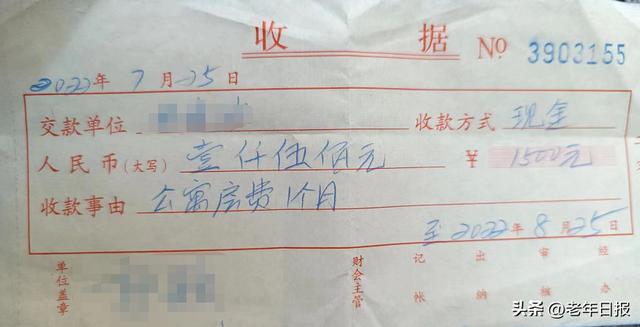 收 据 No 3903155
2022年7月25日
交款单位 收款方式 现金
人民币(大写) 壹仟伍佰元 ¥ 1500元
收款事由 公寓房费1个月
至2022年8月25日
单位盖章 财会主管 记帐 出纳 审核 经办
头条@老年日报